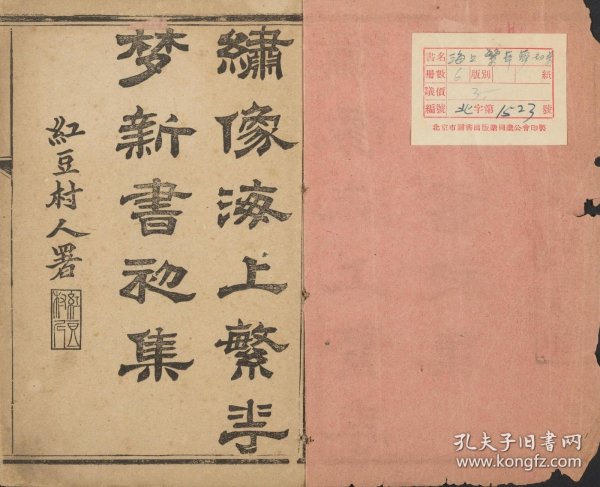 繡像海上繁華
梦新書初集
紅豆村人署
書名 海上繁華夢初集
冊數 6 版別 紙
議價 3
編號 北字第1523號
北京市圖書出版業同業公會印製
孔夫子旧书网
www.kongfz.com